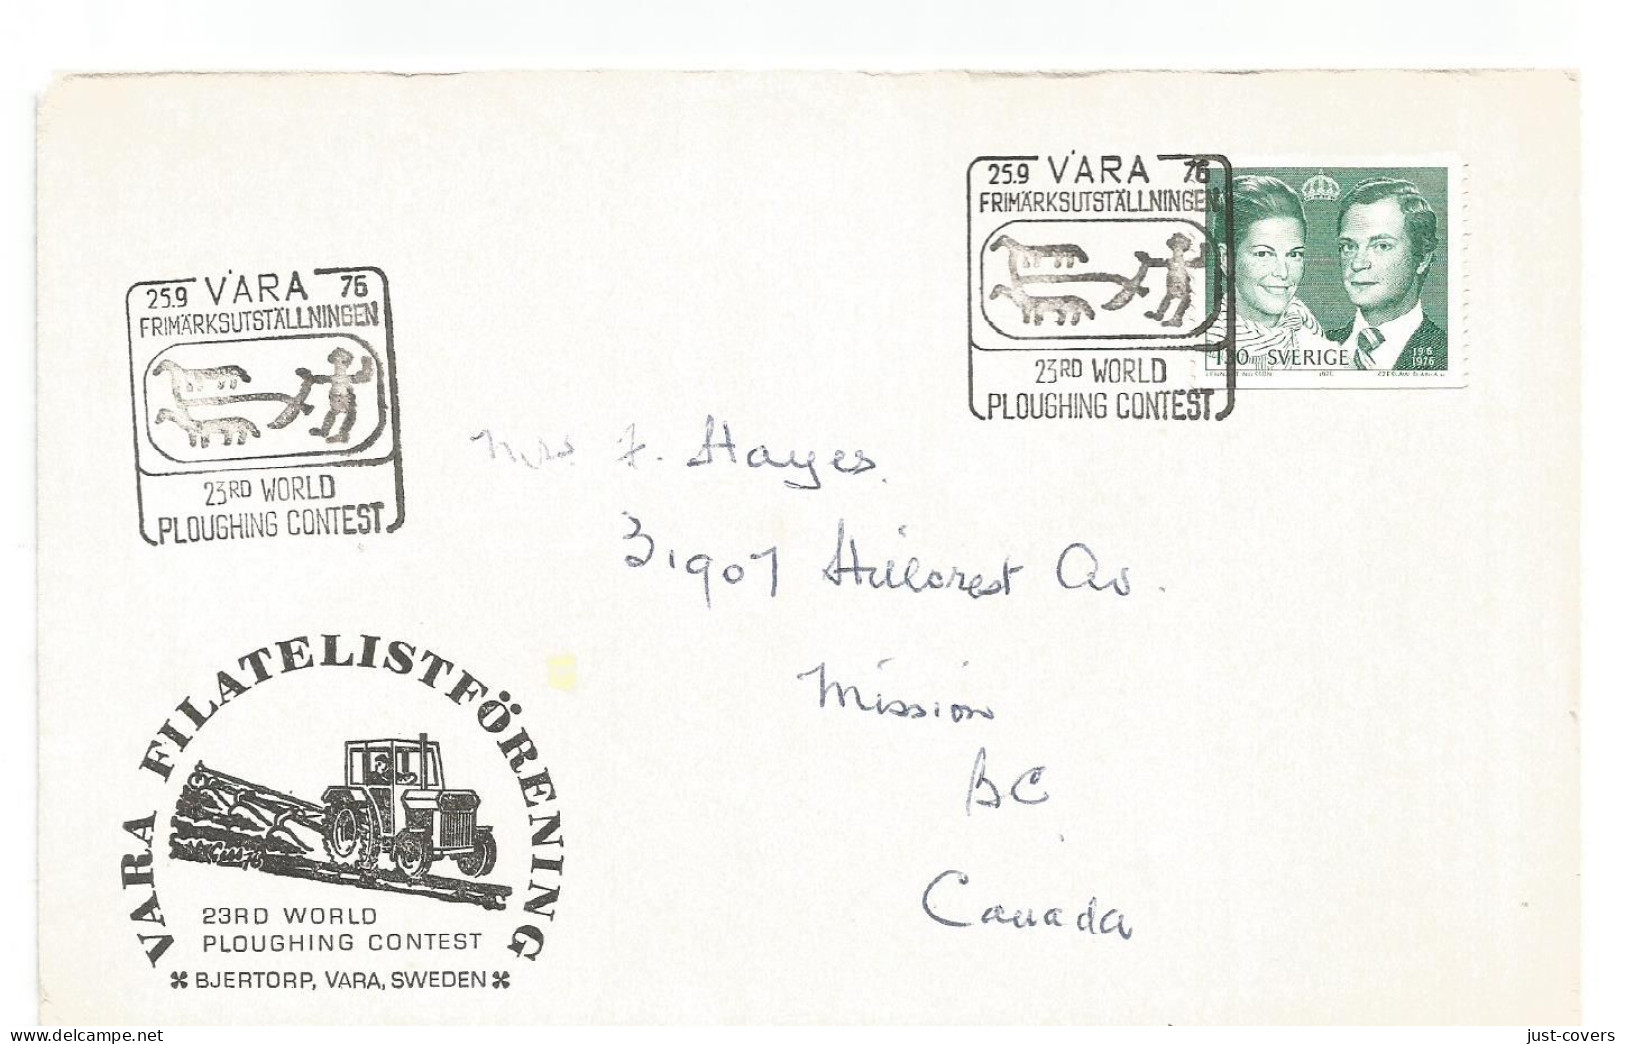 25.9 VARA 76
FRIMÄRKSUTSTÄLLNINGEN
23RD WORLD
PLOUGHING CONTEST
25.9 VARA 76
FRIMÄRKSUTSTÄLLNINGEN
23RD WORLD
PLOUGHING CONTEST
SVERIGE
19.6
1976
Mrs. F. Hayes.
31907 Hillcrest Av.
Mission
BC
Canada
VARA FILATELISTFÖRENING
23RD WORLD
PLOUGHING CONTEST
BJERTORP, VARA, SWEDEN
www.delcampe.net
just-covers